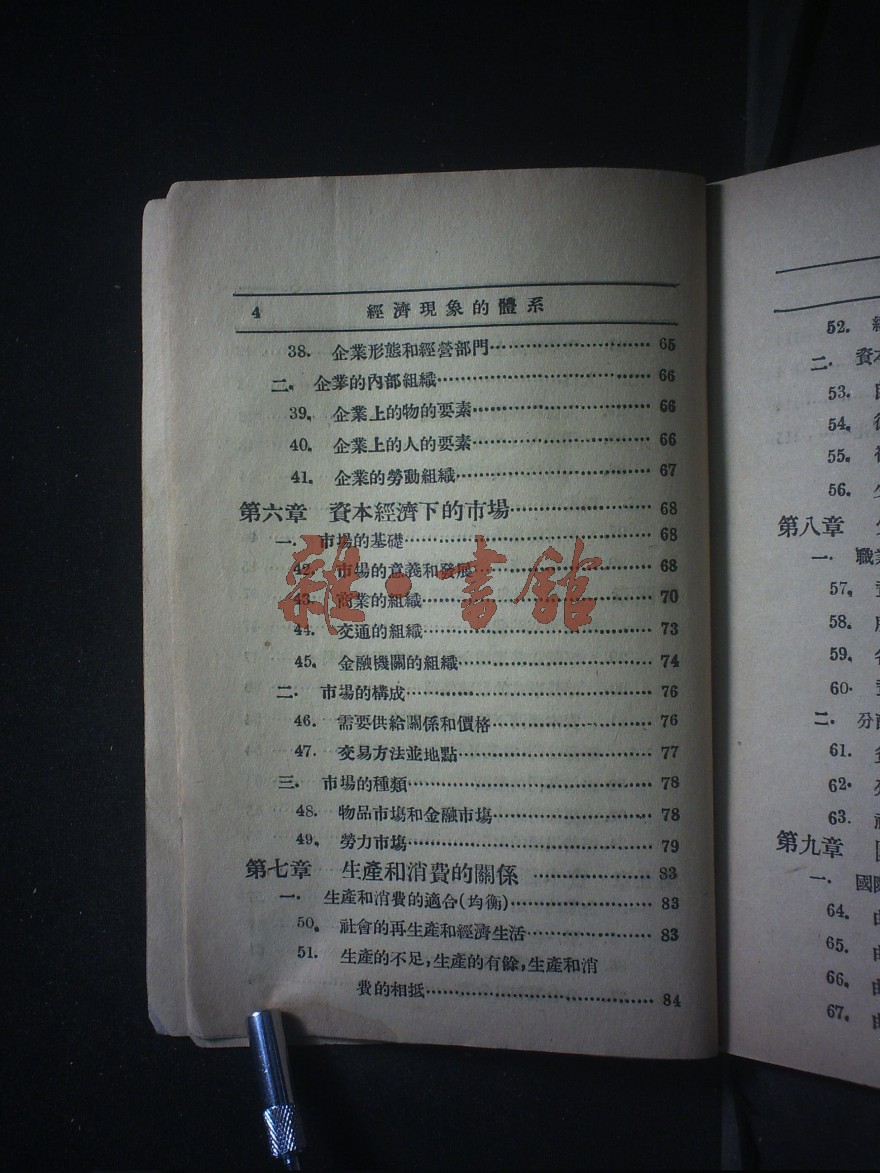 4 經濟現象的體系
38. 企業形態和經營部門 65
二. 企業的內部組織 66
39. 企業上的物的要素 66
40. 企業上的人的要素 66
41. 企業的勞動組織 67
第六章 資本經濟下的市場 68
一. 市場的基礎 68
42. 市場的意義和發展 68
43. 商業的組織 70
44. 交通的組織 73
45. 金融機關的組織 74
二. 市場的構成 76
46. 需要供給關係和價格 76
47. 交易方法並地點 77
三. 市場的種類 78
48. 物品市場和金融市場 78
49. 勞力市場 79
第七章 生產和消費的關係 83
一. 生產和消費的適合(均衡) 83
50. 社會的再生產和經濟生活 83
51. 生產的不足,生產的有餘,生產和消
費的相抵 84
雜·書館
52.
二. 資
53.
54.
55.
56.
第八章
一. 職業
57.
58.
59.
60.
二. 分
61.
62.
63.
第九章
一. 國際
64.
65.
66.
67.